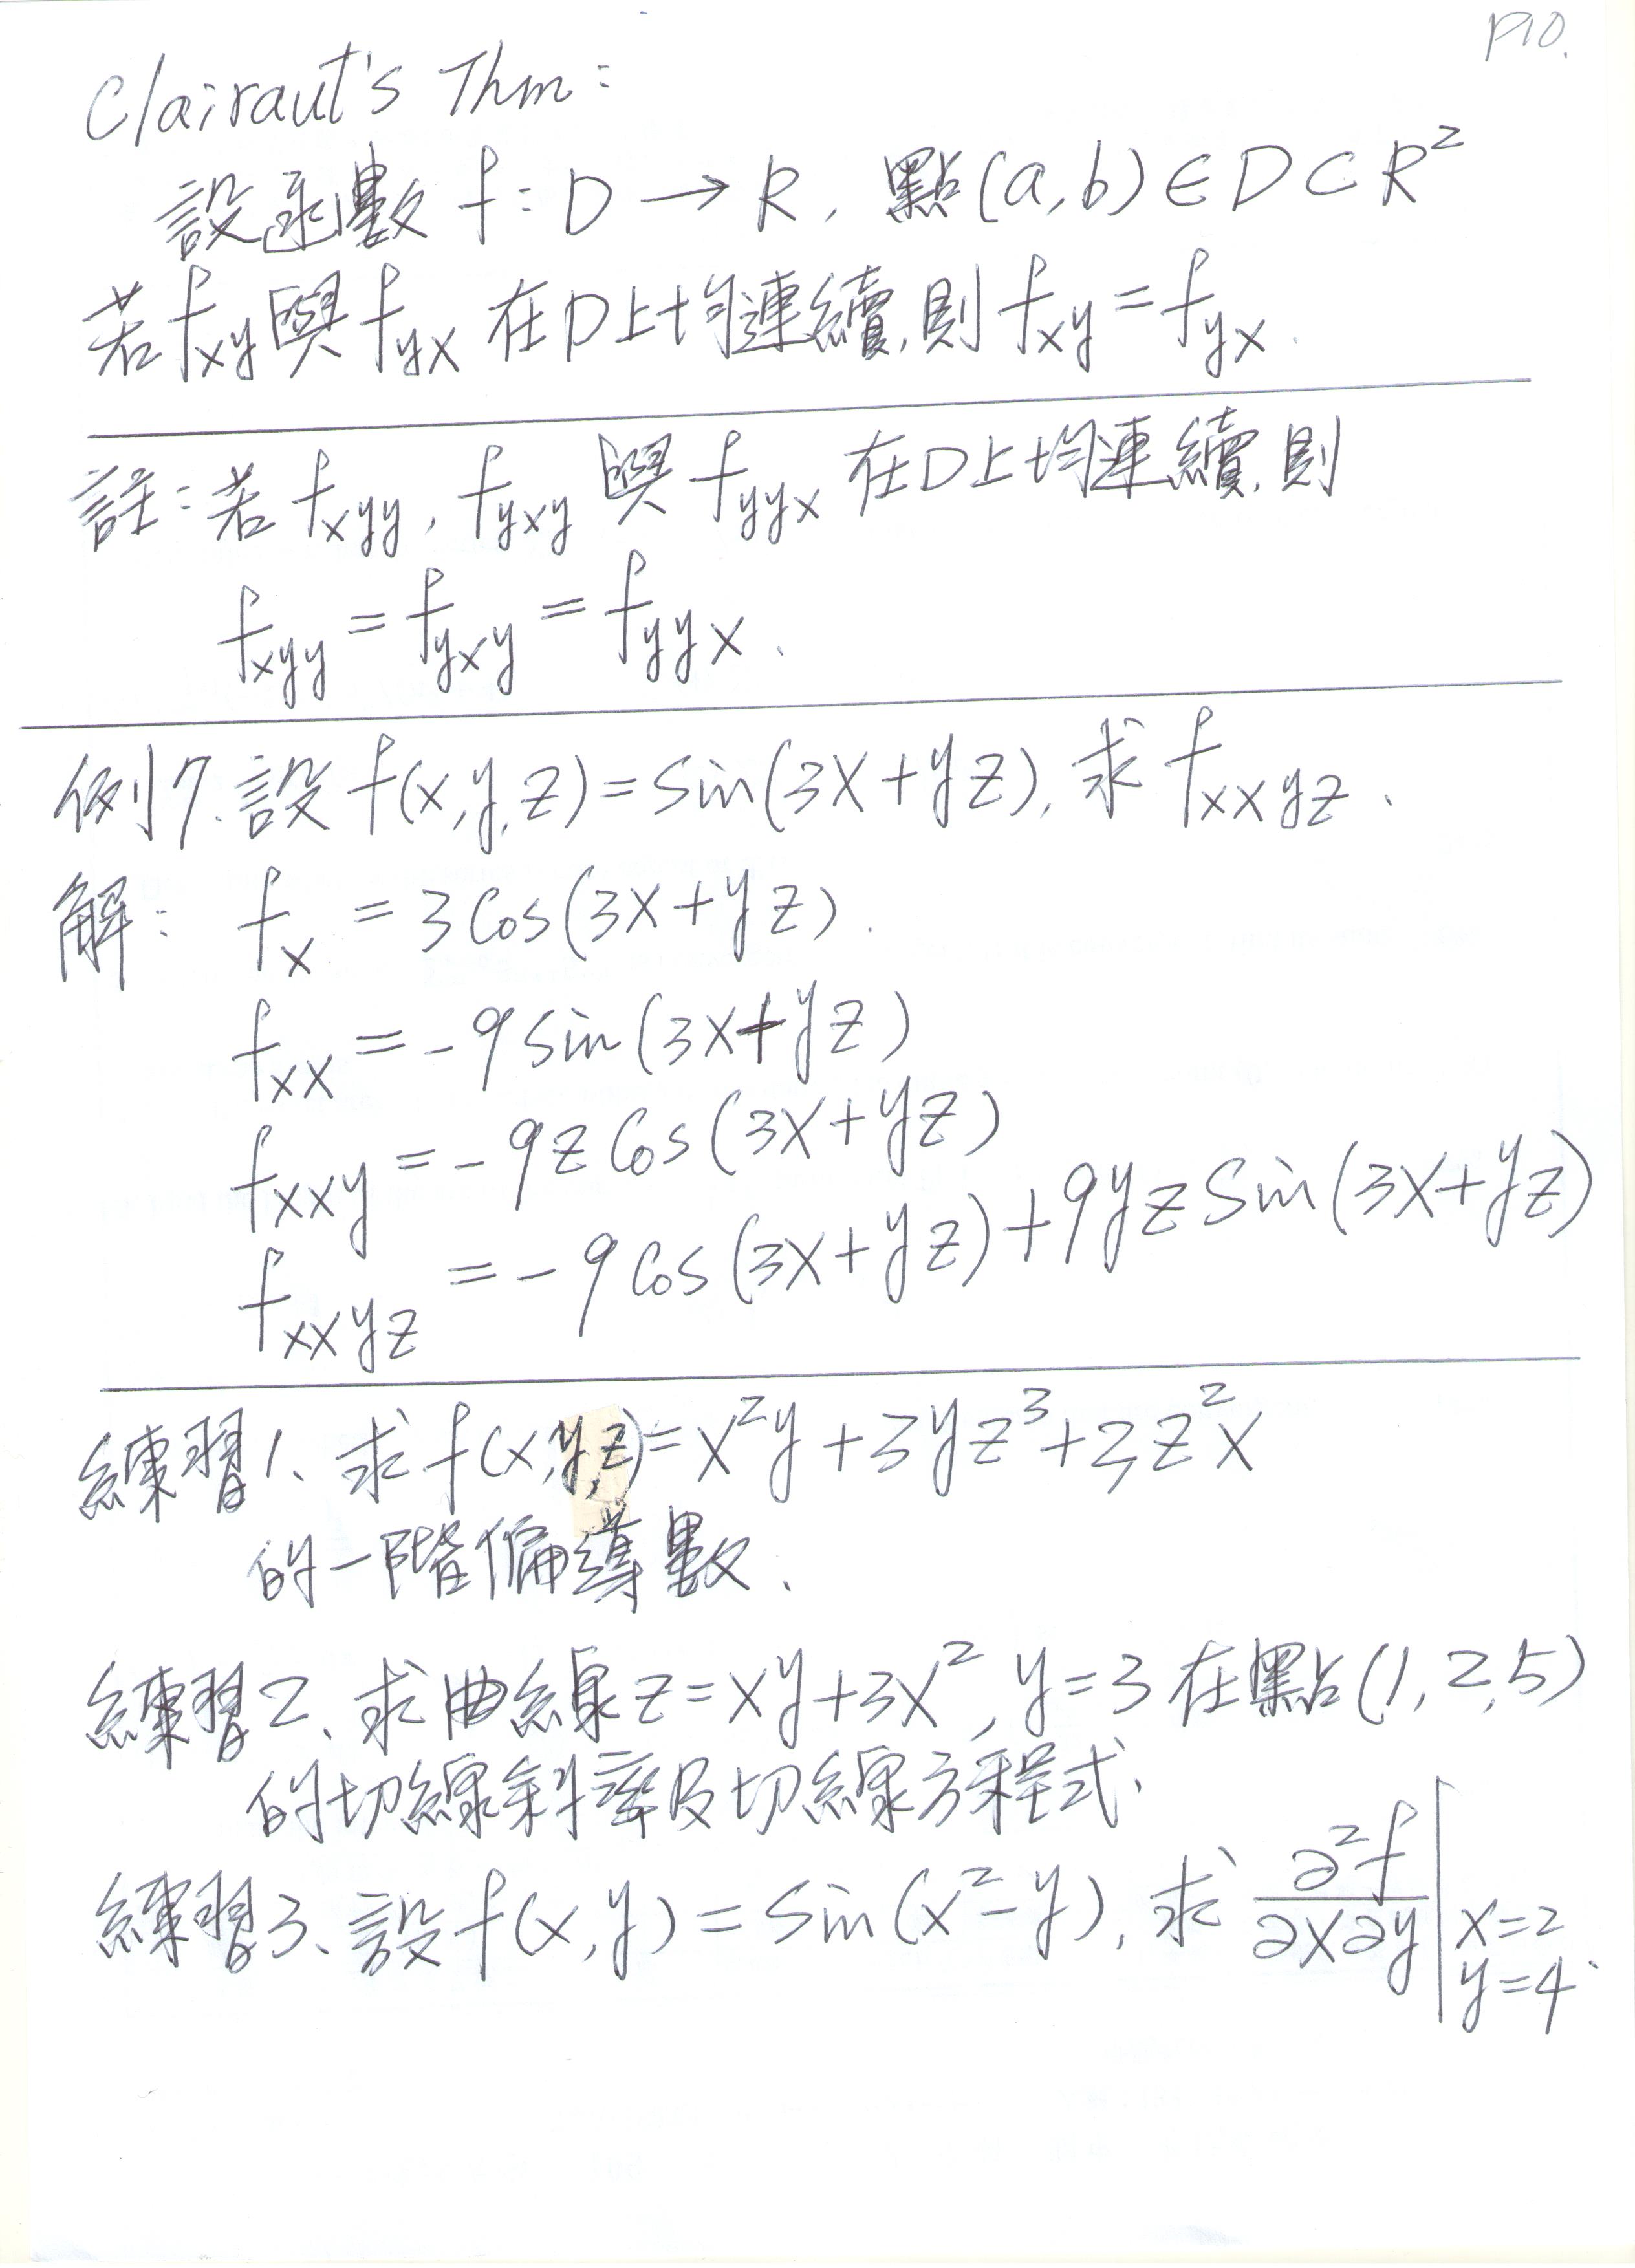 P10.
Clairaut's Thm:
設函數 f: D → R, 點(a,b) ∈ D ⊂ R²
若 f_xy 與 f_yx 在D上均連續,則 f_xy = f_yx.
註:若 f_xyy, f_yxy 與 f_yyx 在D上均連續,則
f_xyy = f_yxy = f_yyx.
例7.設 f(x,y,z)=Sin(3x+yz),求 f_xxyz.
解: f_x = 3Cos(3x+yz).
f_xx = -9Sin(3x+yz)
f_xxy = -9zCos(3x+yz)
f_xxyz = -9Cos(3x+yz)+9yzSin(3x+yz)
練習1、求 f(x,y,z)=x²y+3yz³+2z²x
的一階偏導數、
練習2、求曲線 z=xy+3x², y=3 在點(1,2,5)
的切線斜率及切線方程式、
練習3、設 f(x,y)=Sin(x²-y), 求 ∂²f/∂x∂y | x=2 y=4.